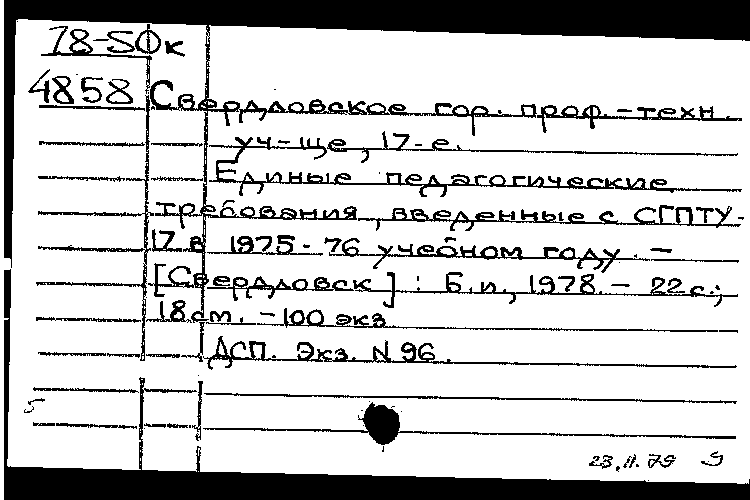 78-50к
4858 Свердловское гор. проф.-техн.
уч-ще, 17-е.
Единые педагогические
требования, введенные с СГПТУ-
17 в 1975-76 учебном году. —
[Свердловск] : Б.и., 1978. — 22 с.;
18 см. — 100 экз.
ДСП. Экз. N 96.
5
23.11.79